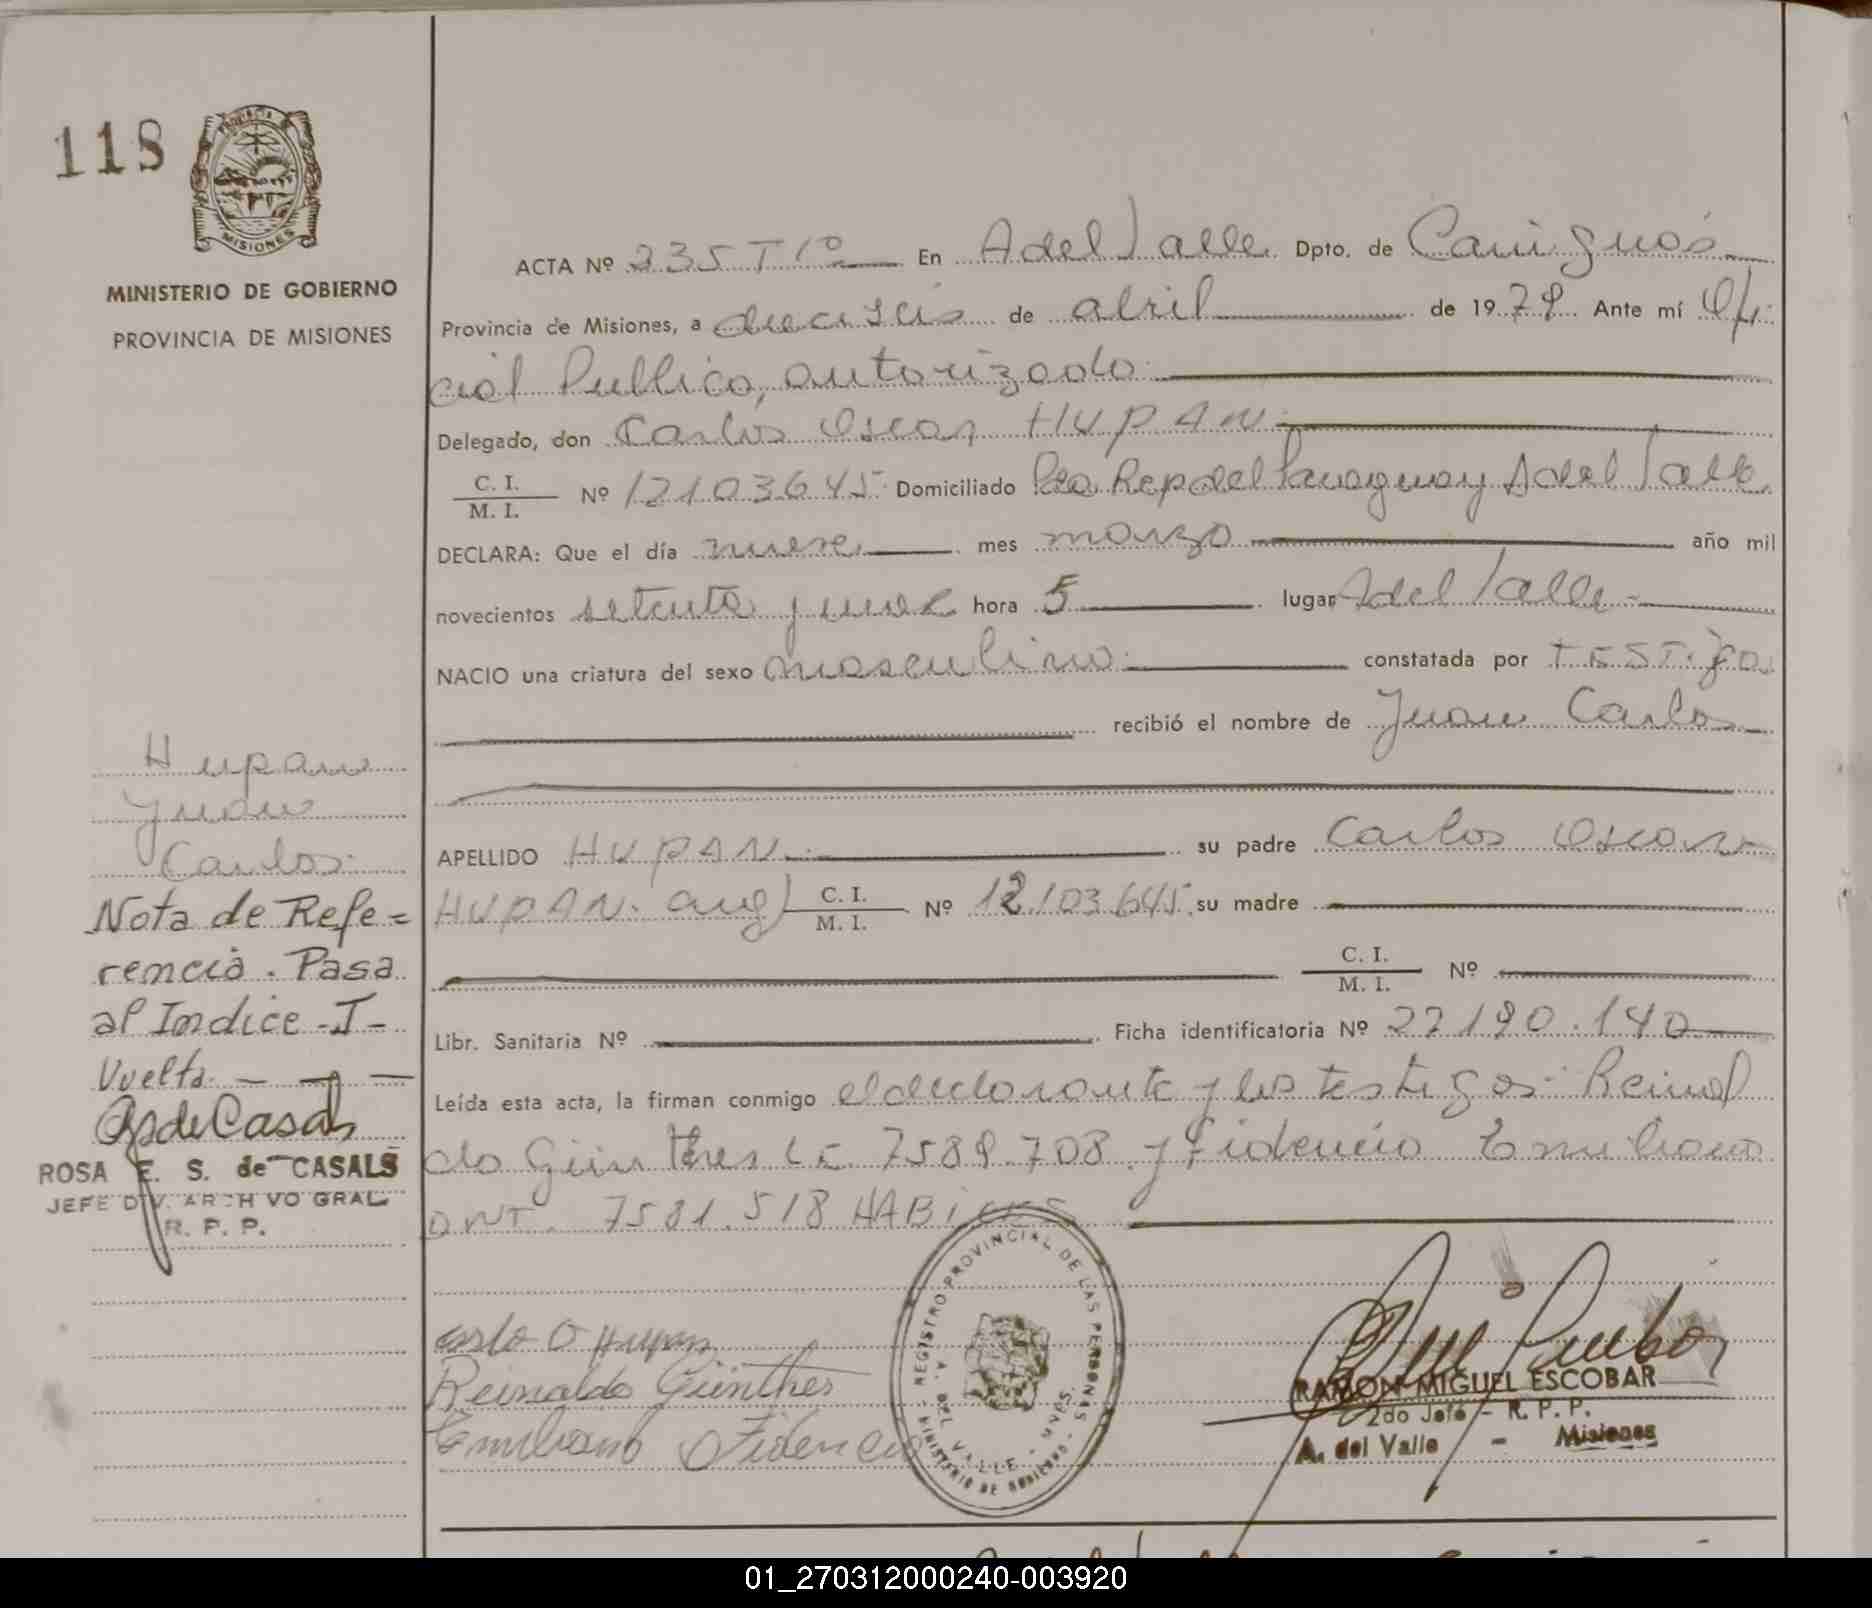 118
PROVINCIA DE
MISIONES
MINISTERIO DE GOBIERNO
PROVINCIA DE MISIONES
ACTA Nº 235 T 1º En A del Valle Dpto. de Cainguás
Provincia de Misiones, a dieciseis de abril de 1979 Ante mí Ofi
cial Publico, autorizado
Delegado, don Carlos Oscar HUPAN
C. I.
M. I. Nº 12103645 Domiciliado Pco Rep del Paraguay A del Valle
DECLARA: Que el día nueve mes marzo año mil
novecientos setenta y nueve hora 5 lugar A del Valle
NACIO una criatura del sexo masculino constatada por TESTigo
recibió el nombre de Juan Carlos
APELLIDO HUPAN su padre Carlos Oscar
HUPAN. arg) C. I.
M. I. Nº 12103645 su madre
C. I.
M. I. Nº
Libr. Sanitaria Nº Ficha identificatoria Nº 27190.140
Leída esta acta, la firman conmigo el declarante y los testigos: Reinal
do Günther LE 7589.708 y Fidencio Emiliano
DNI. 7581.518 HABiles
Hupan
Juan
Carlos
Nota de Refe=
rencia. Pasa
al Indice -I-
Vuelta.
RdeCasals
ROSA E. S. de CASALS
JEFE DIV. ARCHIVO GRAL
R. P. P.
Carlo O Hupan
Reinaldo Günther
Emiliano Fidencio
REGISTRO PROVINCIAL DE LAS PERSONAS
A. DEL VALLE - MNES.
MINISTERIO DE GOBIERNO
RAMON MIGUEL ESCOBAR
2do Jefe - R. P. P.
A. del Valle - Misiones
01_270312000240-003920